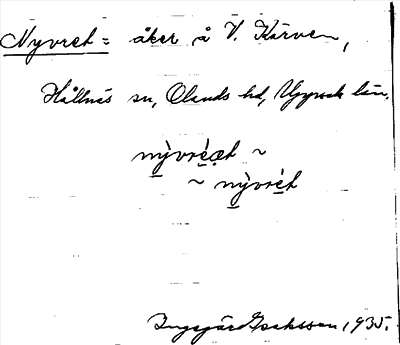 Nyvret = åker å V. Kärven,
Hållnäs sn, Olands hd, Uppsala län.
nỳvré̱æt ~
~ nỳvré̱t
Ingegärd Isaksson, 1935.